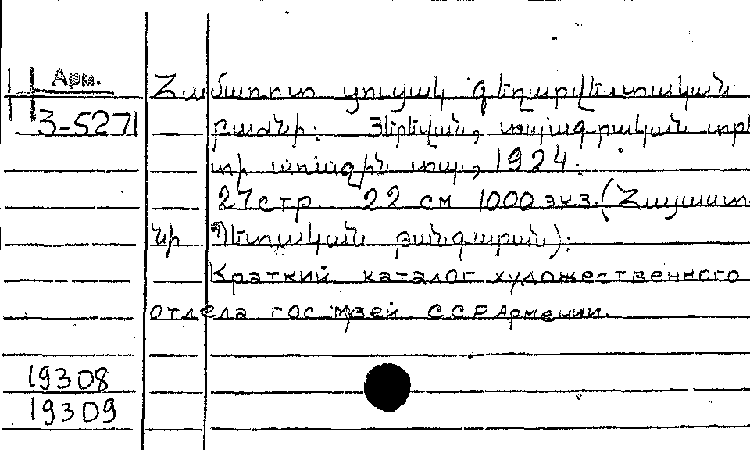 Арм.
Համառոտ ցուցակ գեղարվեստական
3-5271 բաժնի: Յերեվան, տպագրական
տի առաջին տպ., 1924.
27 стр 22 см 1000 экз. (Հայաստա
նի Պետական թանգարան):
Краткий каталог художественного
отдела гос музей ССР Армении.
19308
19309